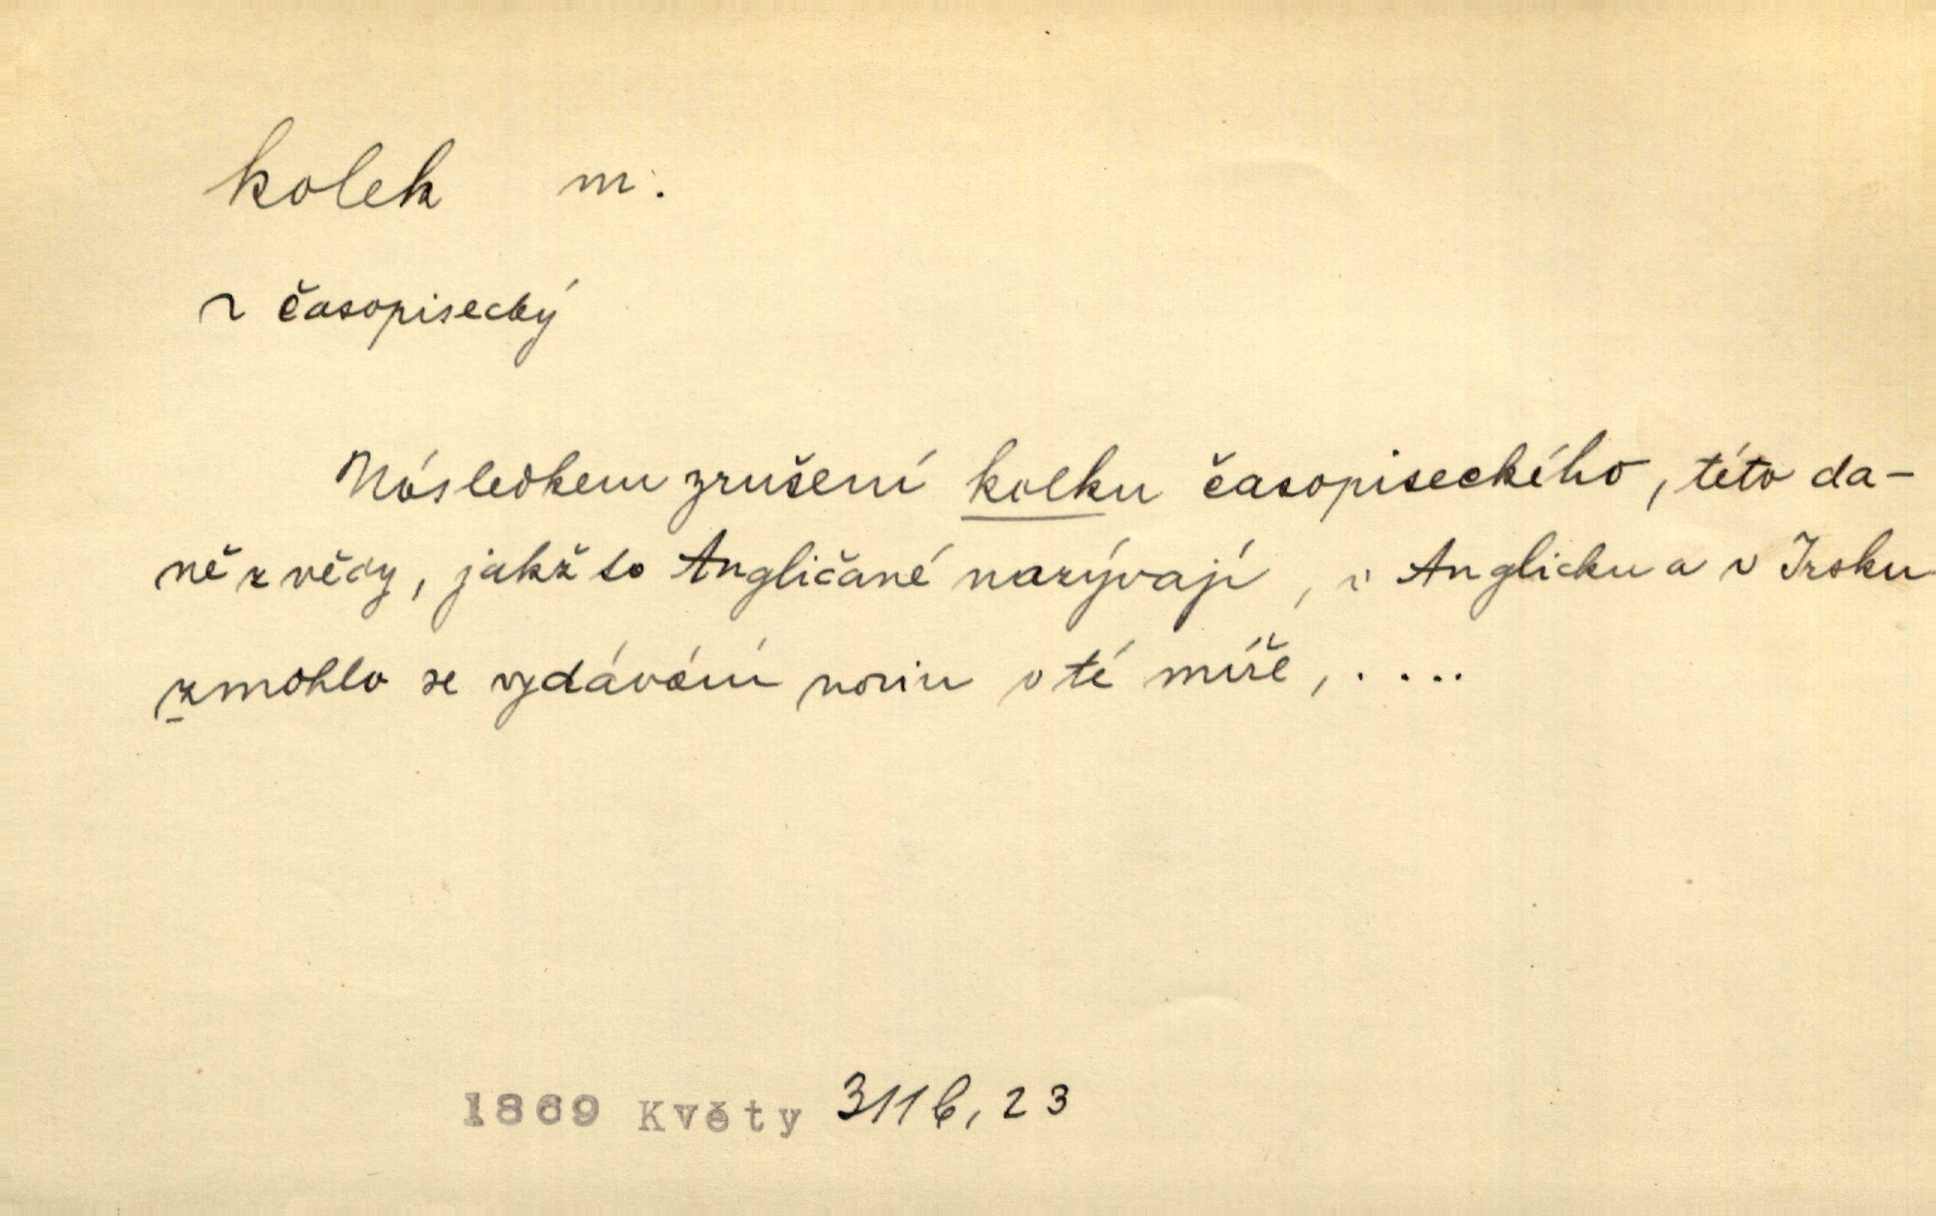 kolek m.
~ časopisecký
Následkem zrušení kolku časopiseckého, této da-
ně z vědy, jakž to Angličané nazývají, v Anglicku a v Irsku
zmohlo se vydávání novin v té míře, . . . .
1869 Květy 311b, 23